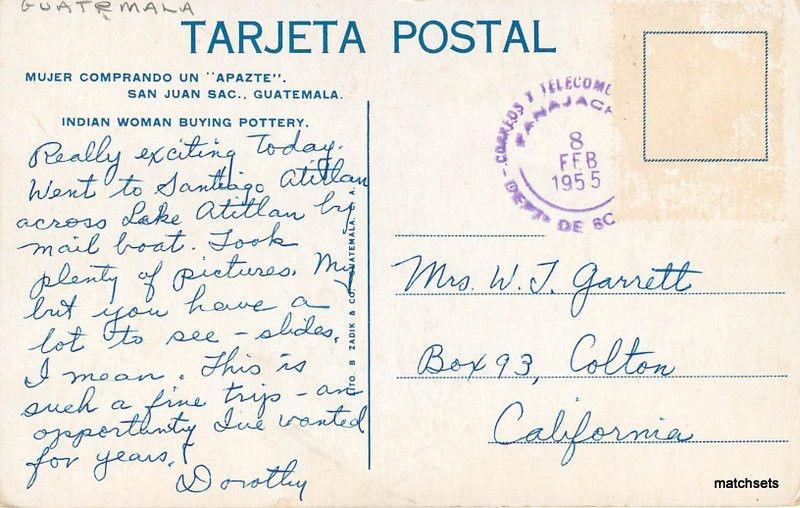 GUATEMALA
TARJETA POSTAL
MUJER COMPRANDO UN "APAZTE".
SAN JUAN SAC., GUATEMALA.
INDIAN WOMAN BUYING POTTERY.
Really exciting Today.
Went to Santiago Atitlan
across Lake Atitlan by
mail boat. Took
plenty of pictures. My
but you have a
lot to see - slides,
I mean. This is
such a fine trip - an
opportunity I've wanted
for years!
Dorothy
LITO B ZADIK & CO. GUATEMALA,
CORREOS Y TELECOMU
PANAJACH
8
FEB
1955
DEPTO DE SO
Mrs. W. T. Garrett
Box 93, Colton
California
matchsets